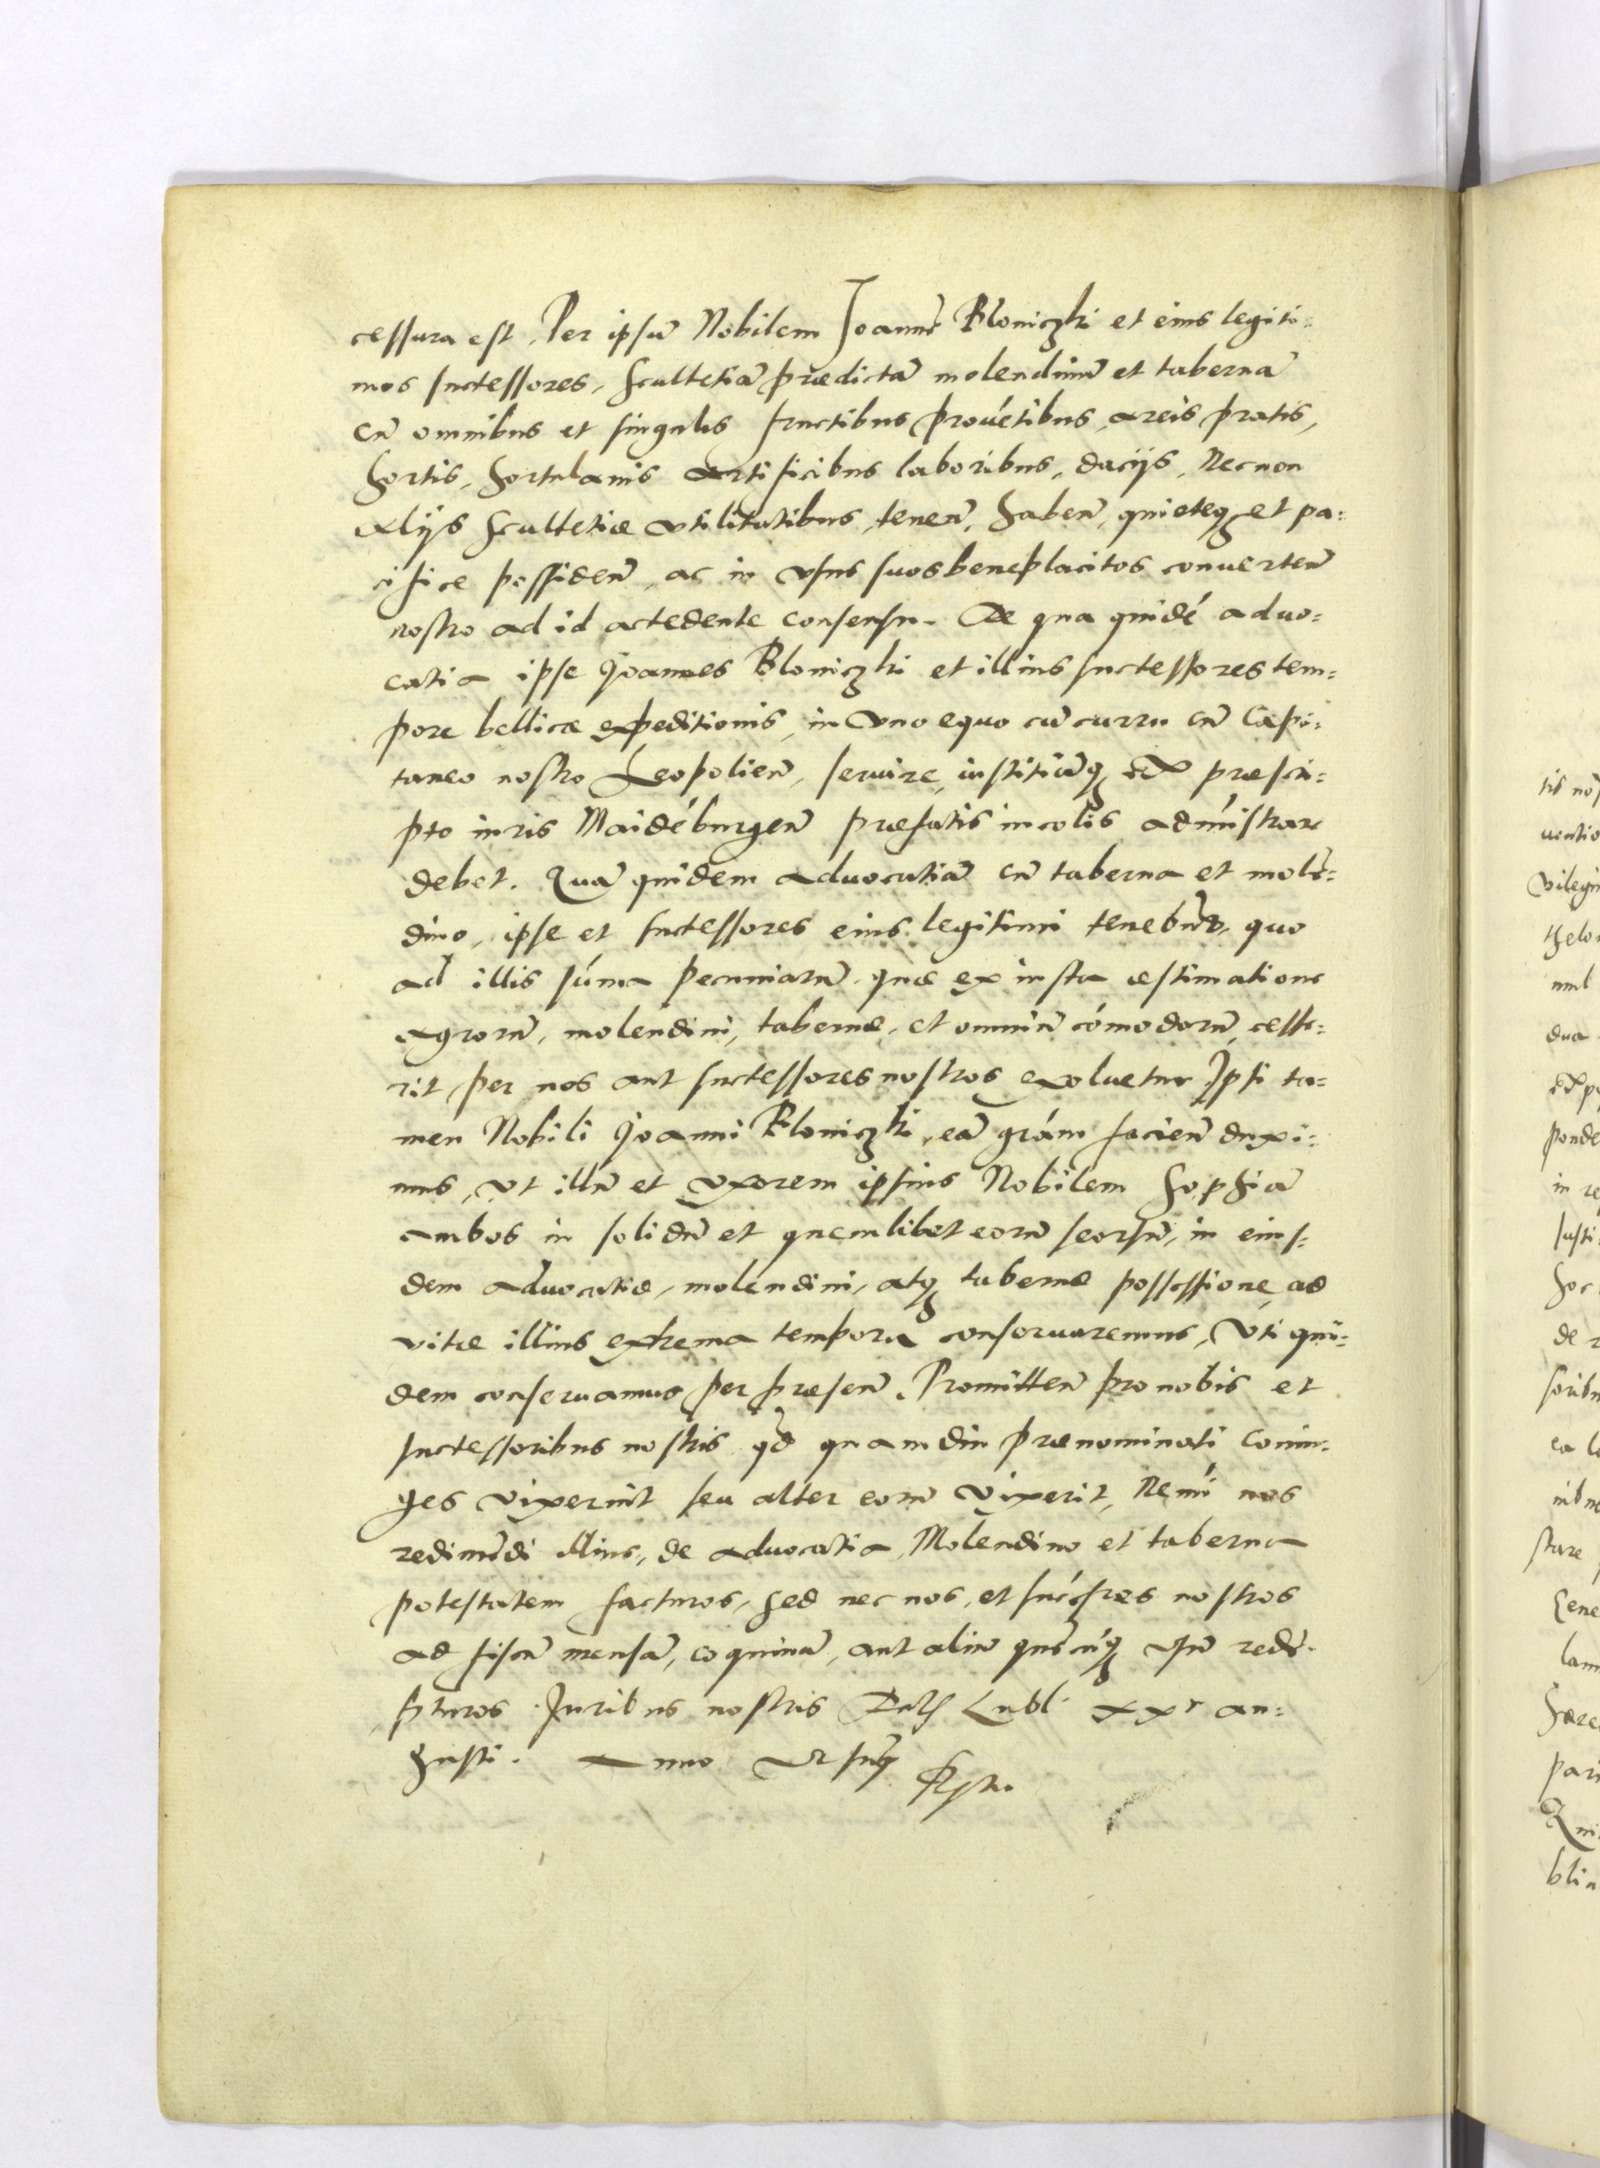 cessura est, Per ipsū Nobilem Joannē Bloniczki et eius legiti:
mos successores, scultetiā prædictā molendinū et tabernā
cū omnibus et singulis fructibus provētibus, areis pratis,
hortis, hortulanis artificibus laboribus, dacijs, Necnon
alijs scultetiæ utilitatibus, tenen̄, haben̄, quieteq; et pa:
cifice possiden̄, ac in usus suos beneplacitos converten̄
nostro ad id accedente consensu. De qua quidē advo:
catia ipse Joannes Bloniczki et illius successores tem:
pore bellicæ expeditionis, in Uno equo cū curru cū Capi:
taneo nostro Leopolien̄, servire, iustitiāq; ex præscri:
pto iuris Maidēburgen̄ præfatis incolis admīstrare
debet. Quā quidem advocatiā cū taberna et molē:
dino, ipse et successores eius legitimi tenebūt, quo
ad illis sūma pecuniarū quæ ex iusta æstimatione
agrorū, molendini, tabernæ, et omniū cōmodorū, cesse:
rit per nos aut successores nostros exolvetur Ipsi ta:
men Nobili Joanni Bloniczki, eā grām facien̄ duxi:
mus, Ut illū et Uxorem ipsius Nobilem Sophiā
ambos in solidū et quemlibet eorū seorsū, in eius:
dem advocatiæ, molendini, atq; tabernæ possessione, ad
vitæ illius extrema tempora conservaremus, Uti qui:
dem conservamus per præsen̄. Promitten̄ pro nobis et
successoribus nostris qd quamdiu prænominati Coniu:
ges vixerint seu alter eorū vixerit, Nemī nos
redimēdi illius, de advocatia, Molendino et taberna
potestatem facturos, sed nec nos, et succēres nostros
ad fiscū mensā, coquinā, aut aliū quēcūq; usū redē:
pturos. Iuribus nostris Lubl xx an:
gusti. Anno Ut